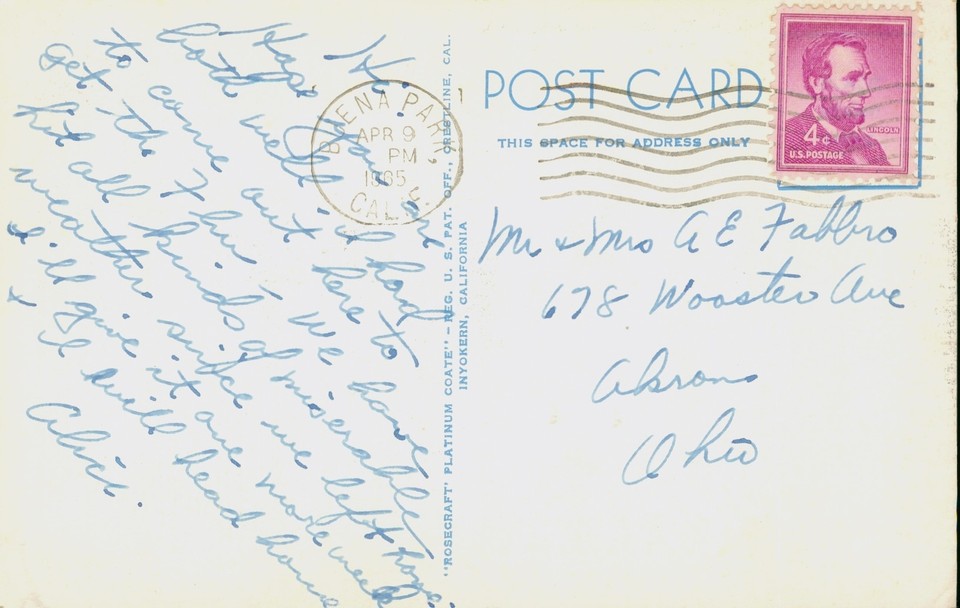 Hi.
Hope you are
both well. I had
to come out here to
get the Flu. We have
hit all kinds of miserable
weather since we left home.
I'll give it one more week
& I will head home
Alice.
BUENA PARK,
APR 9
PM
1965
CALIF.
"ROSECRAFT' PLATINUM COATE" – REG. U. S. PAT. OFF., CRESTLINE, CAL.
INYOKERN, CALIFORNIA
POST CARD
THIS SPACE FOR ADDRESS ONLY
LINCOLN
4¢
U.S. POSTAGE
Mr & Mrs A E Fabbro
678 Wooster Ave
Akron
Ohio